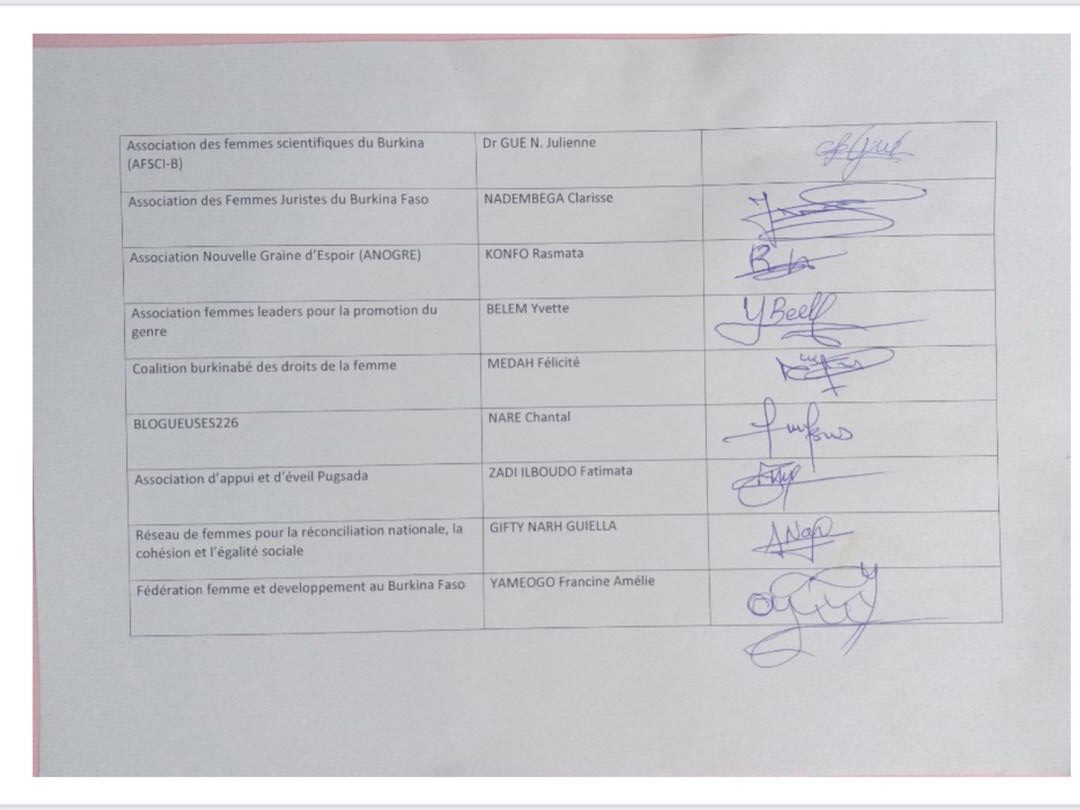 Association des femmes scientifiques du Burkina
(AFSCI-B)
Dr GUE N. Julienne
Association des Femmes Juristes du Burkina Faso
NADEMBEGA Clarisse
Association Nouvelle Graine d'Espoir (ANOGRE)
KONFO Rasmata
Association femmes leaders pour la promotion du
genre
BELEM Yvette
YBeell
Coalition burkinabé des droits de la femme
MEDAH Félicité
BLOGUEUSES226
NARE Chantal
Association d'appui et d'éveil Pugsada
ZADI ILBOUDO Fatimata
Réseau de femmes pour la réconciliation nationale, la
cohésion et l'égalité sociale
GIFTY NARH GUIELLA
Fédération femme et developpement au Burkina Faso
YAMEOGO Francine Amélie